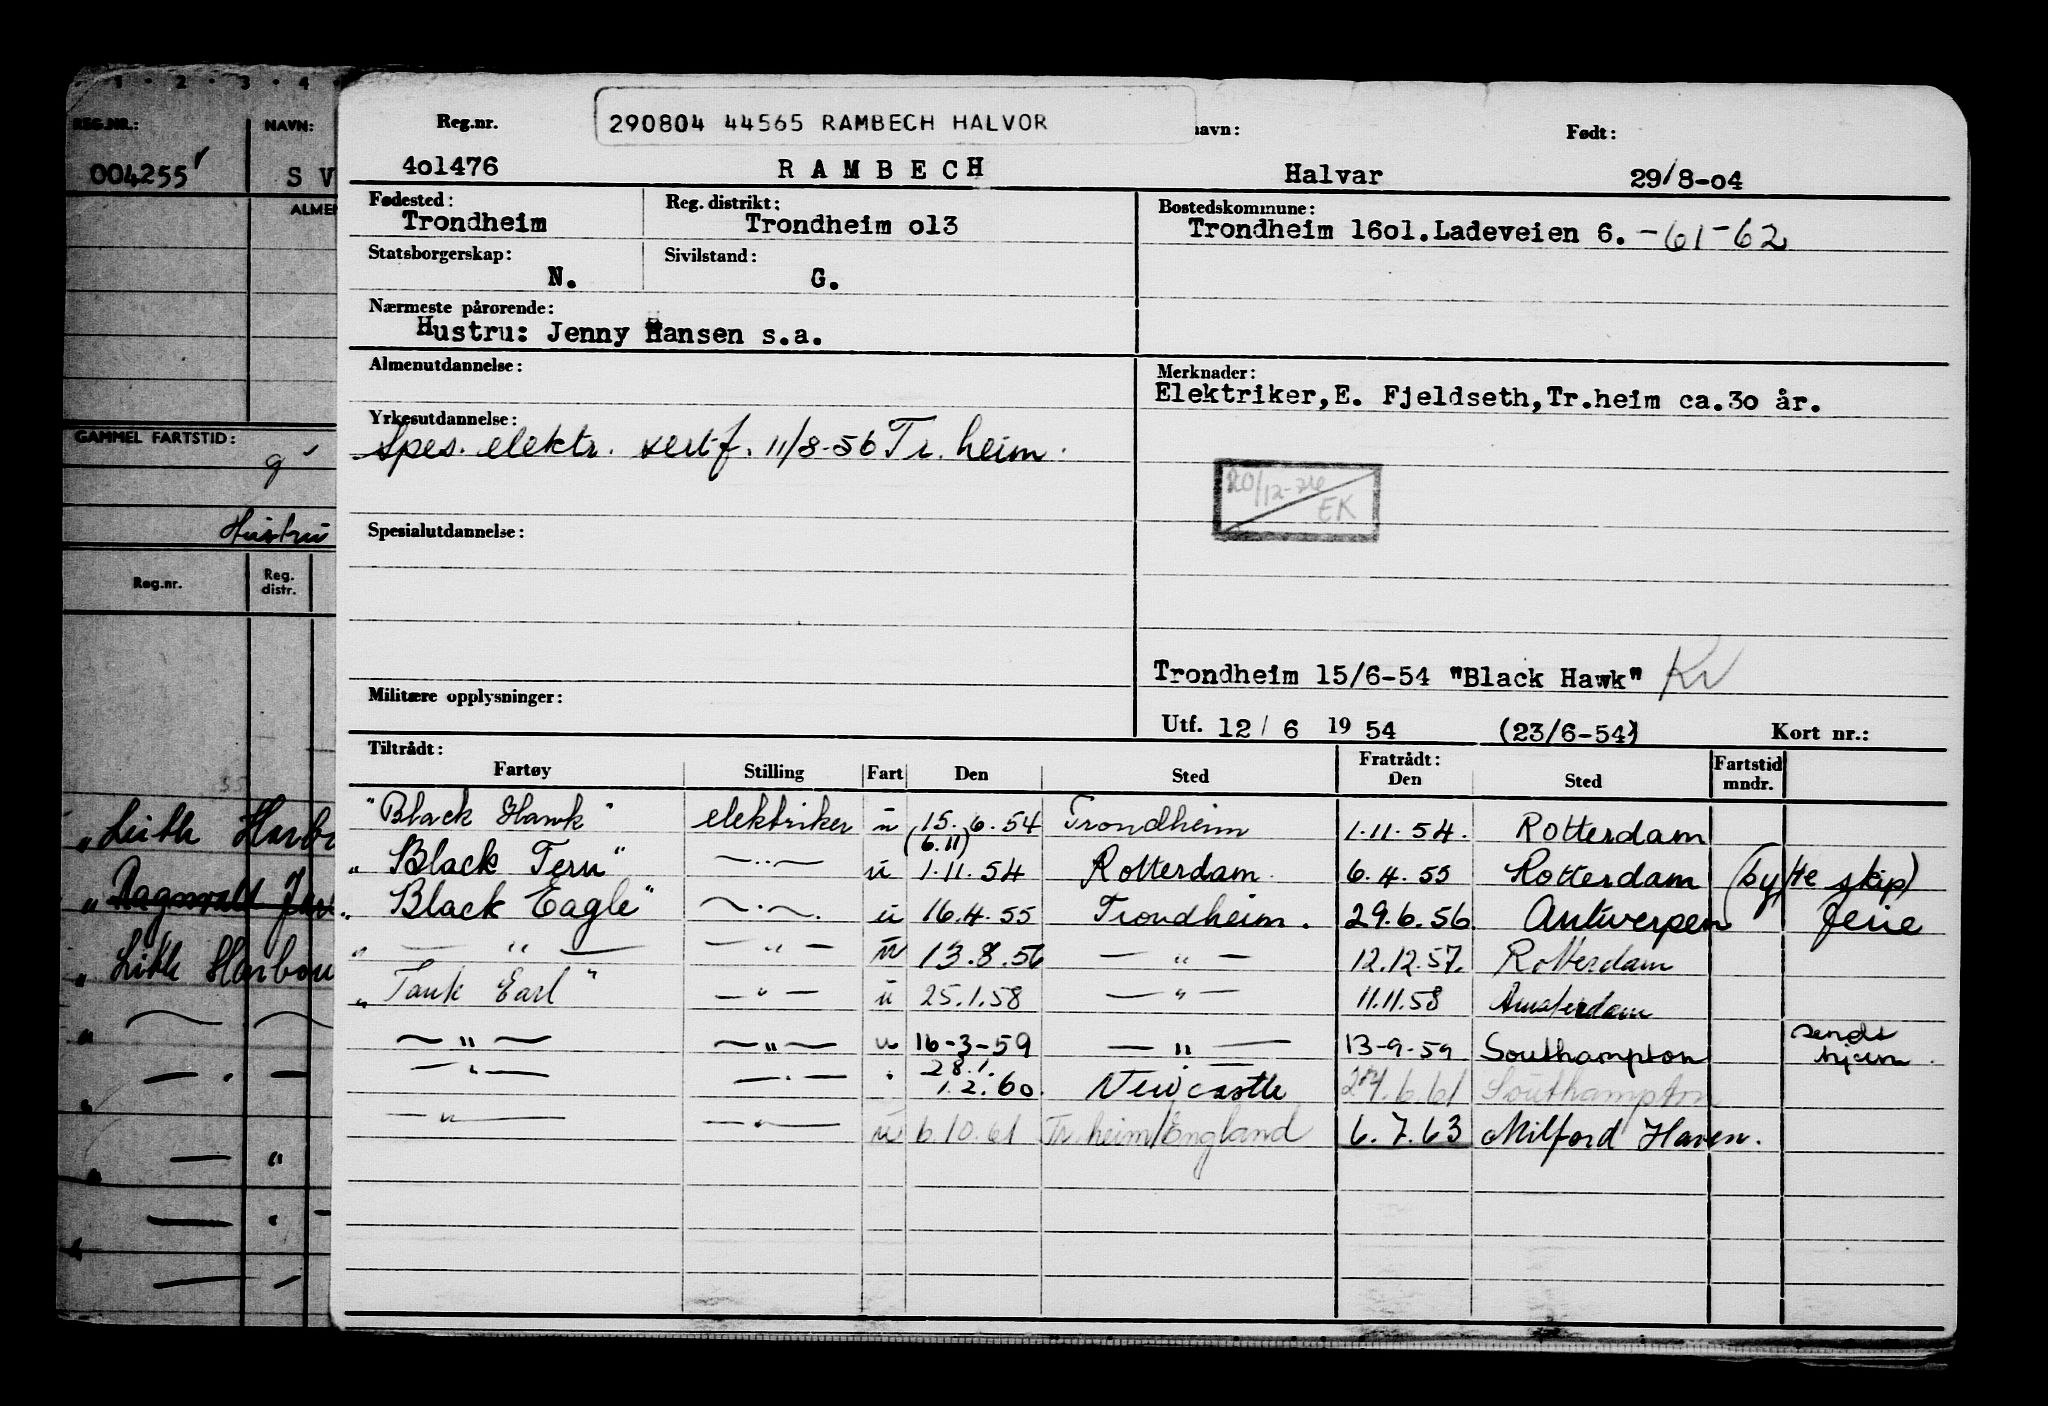 1 · 2 · 3 · 4
REG.NR.: NAVN:
004255 S V
ALMEN
GAMMEL FARTSTID:
Hustru
Reg.nr. Reg. distr.
" Leith Harbo
" Ragnvald Jar
" Lith Harbou
Reg.nr. 290804 44565 RAMBECH HALVOR navn: Født:
4o1476 RAMBECH Halvar 29/8-o4
Fødested: Reg. distrikt: Bostedskommune:
Trondheim Trondheim o13 Trondheim 16o1.Ladeveien 6. -61-62
Statsborgerskap: Sivilstand:
N. G.
Nærmeste pårørende:
Hustru: Jenny Hansen s.a.
Almenutdannelse: Merknader:
Elektriker,E. Fjeldseth,Tr.heim ca.3o år.
Yrkesutdannelse:
Spes. elektr. sertf. 11/8-56 Tr.heim.
20/12-76 EK
Spesialutdannelse:
Trondheim 15/6-54 "Black Hawk" Kv
Militære opplysninger:
Utf. 12 / 6 19 54 (23/6-54) Kort nr.:
Tiltrådt: Fratrådt: Fartstid
Fartøy Stilling Fart Den Sted Den Sted mndr.
"Black Hawk" elektriker u 15.6.54 Trondheim 1.11.54. Rotterdam
(6.11)
"Black Tern" —··— u 1.11.54 Rotterdam 6.4.55 Rotterdam (bytte skip)
"Black Eagle" —·—. u 16.4.55 Trondheim. 29.6.56 Antwerpen ferie
" — " — — " — u 13.8.56 — " — 12.12.57. Rotterdam
"Tank Earl" — " — u 25.1.58 — " — 11.11.58 Amsterdam
— " — — " — u 16-3-59 — " — 13-9-59 Southampton sendt hjem.
28.1.
— " — — " — " 1.2.60. Newcastle 24.6.61 Southampton
— " — — " — u 6.10.61 Tr.heim/England 6.7.63 Milford Haven.